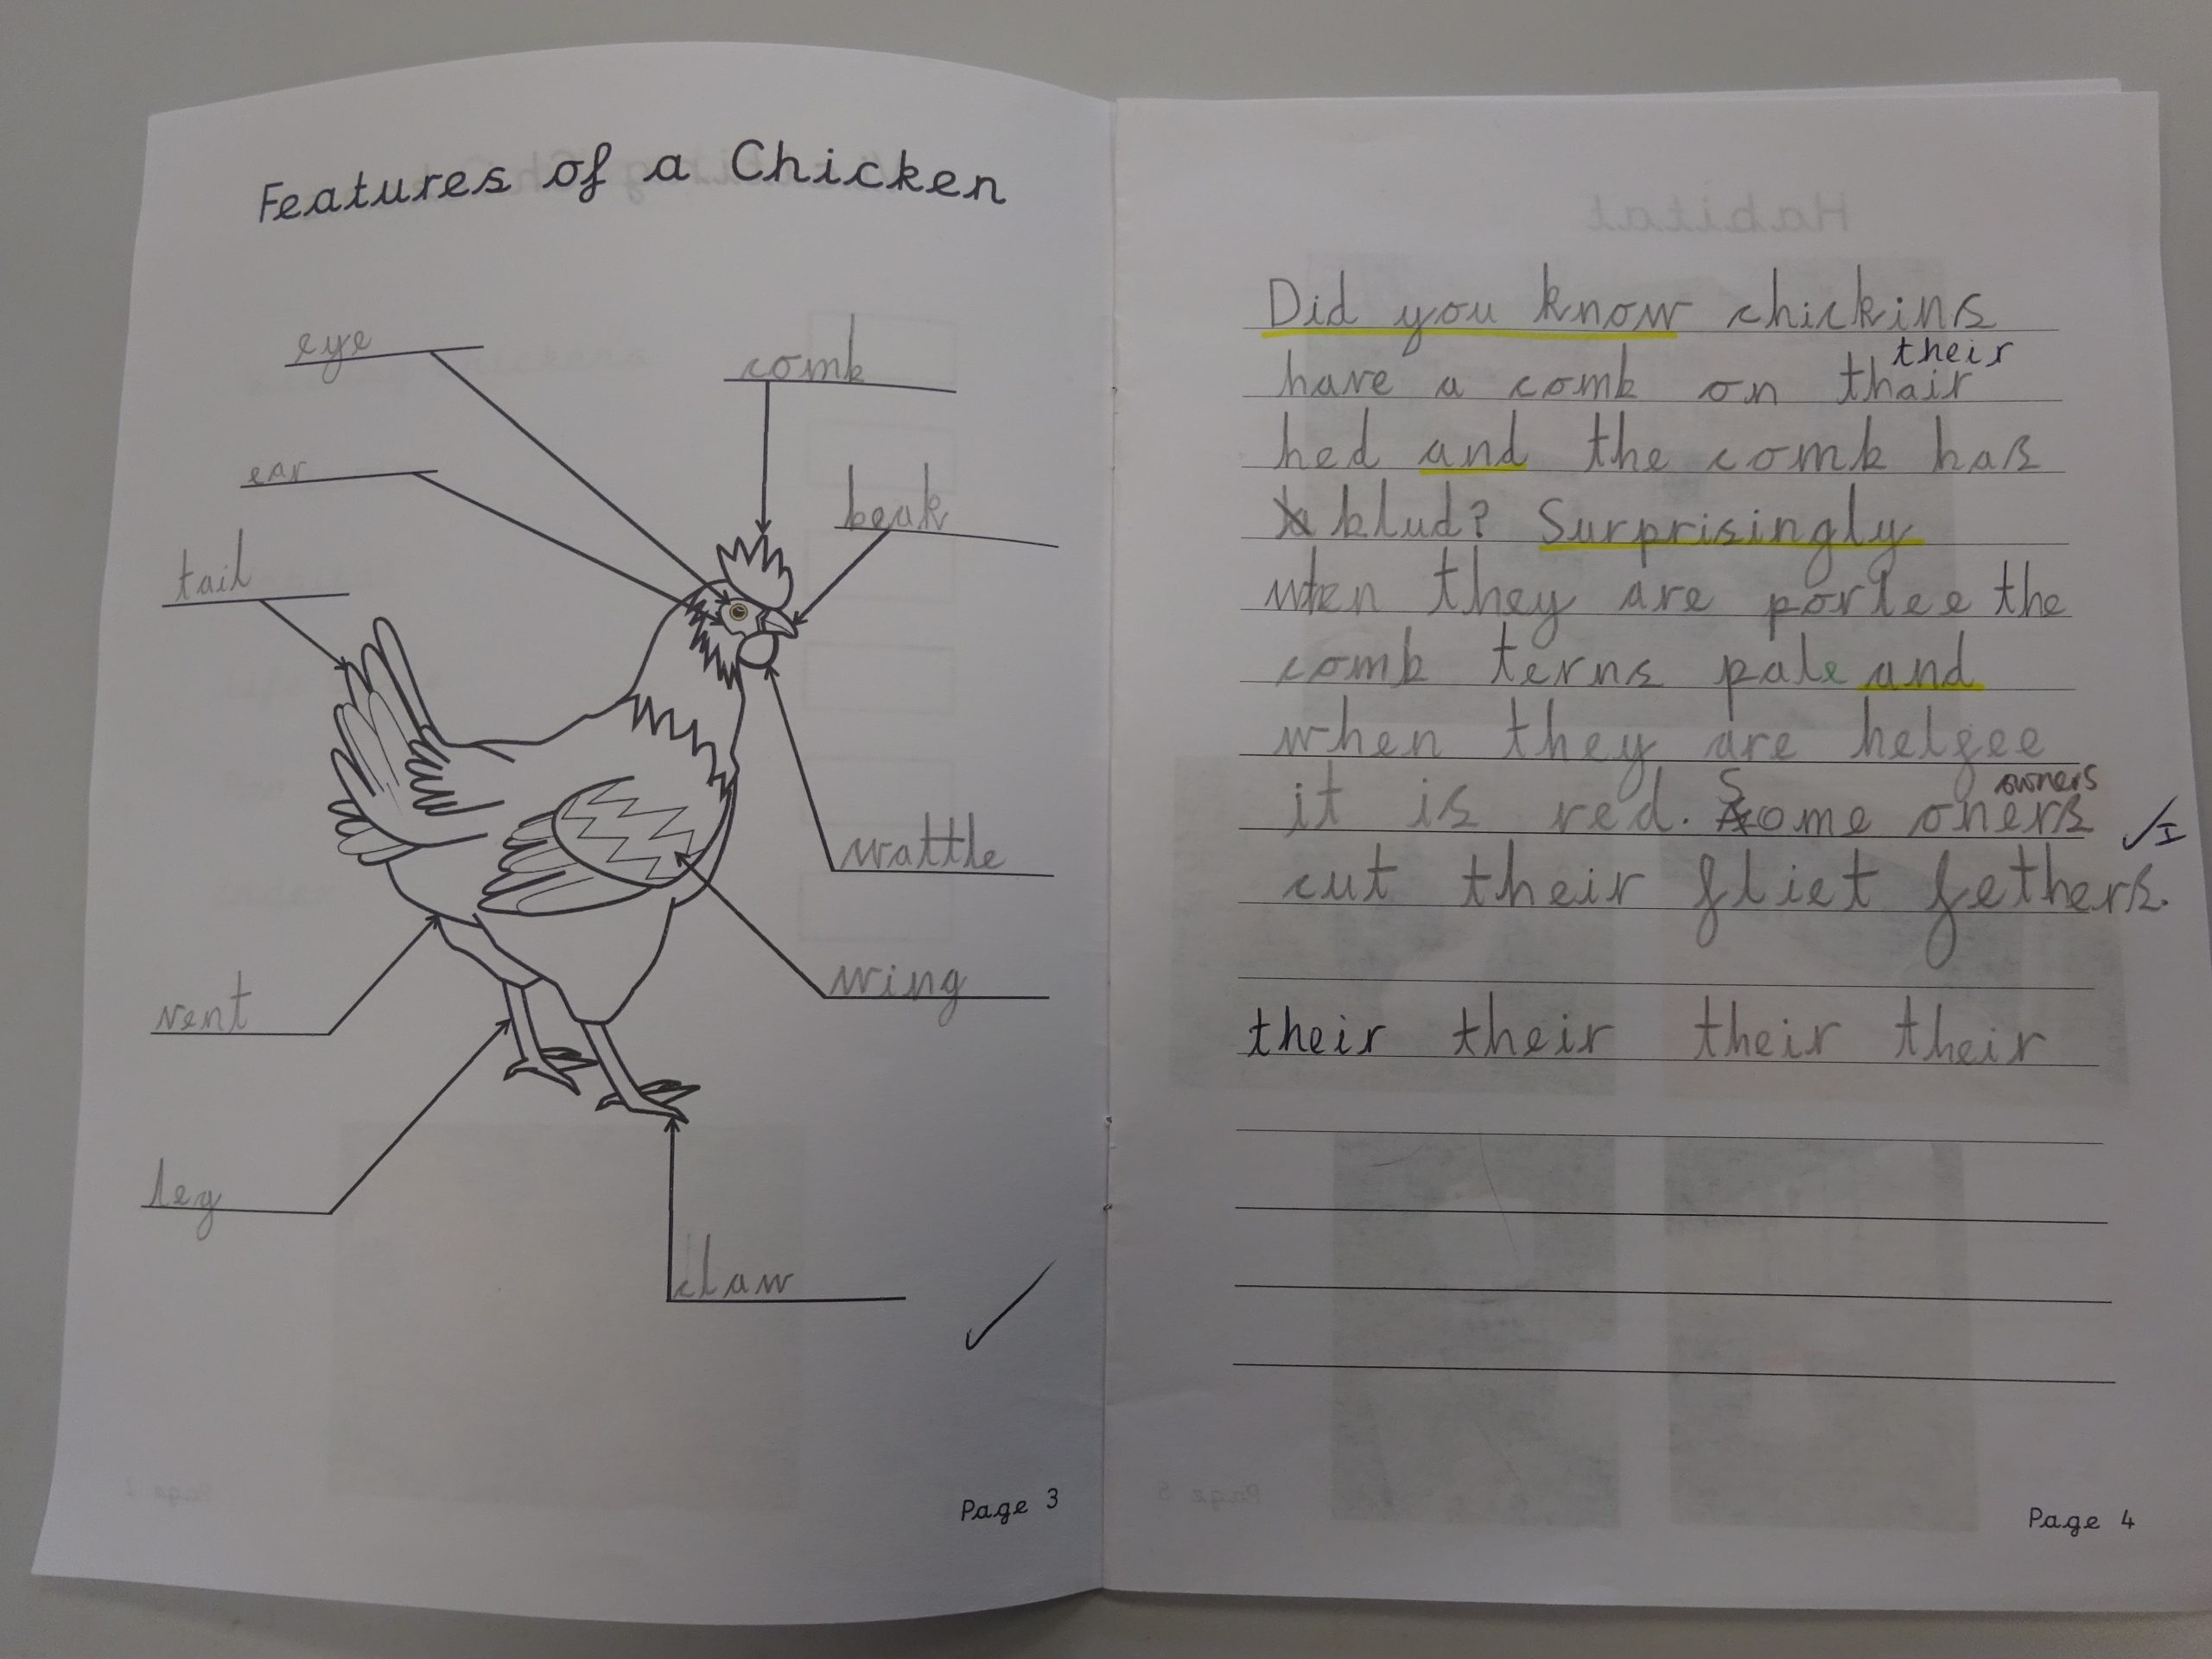 Features of a Chicken
eye
comb
ear
beak
tail
wattle
vent
wing
leg
claw
Page 3
Did you know chickins
their
have a comb on thair
hed and the comb has
klud? Surprisingly
when they are porlee the
comb terns pale and
when they are helfee
owners
it is red. Some oners
cut their fliet fethers.
their their their their
Page 4